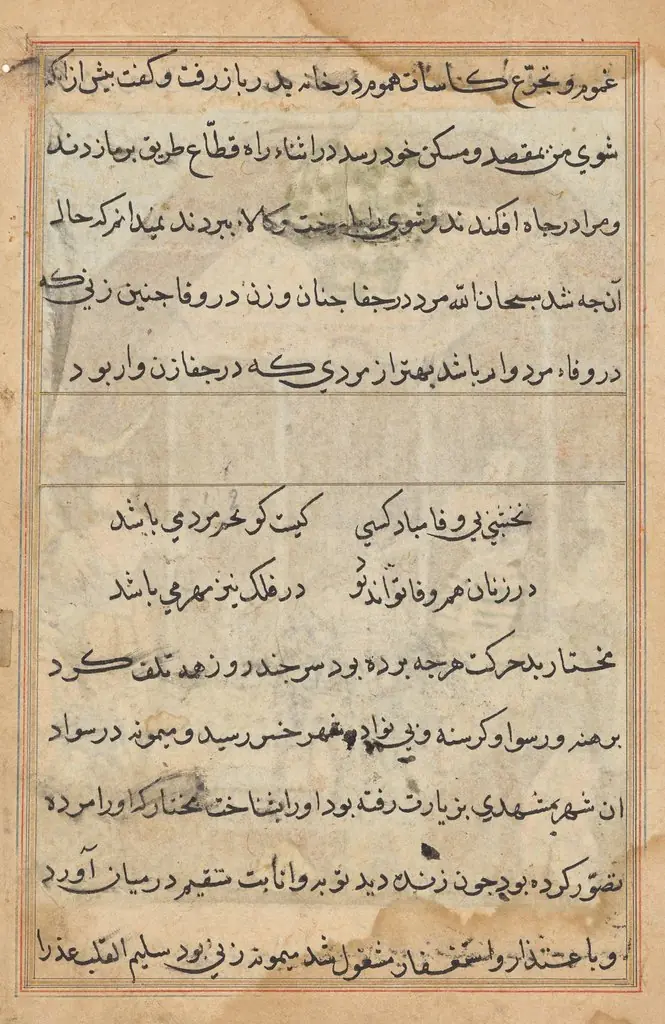 غموم و تجرّع کاسات هموم در خانه پدر باز رفت و گفت بیش از انکه
شوي من بمقصد و مسکن خود رسد در اثناء راه قطّاع طریق بر ما زدند
و مرا در جاه افکندند و شوي را با رخت و کالا ببردند نمیدانم که حال
آن جه شد سبحان الله مرد در جفا جنان و زن در وفا جنین زني که
در وفاء مرد وار باشد بهتر از مردي که در جفا زن وار بود
نخشبي بي وفا مباد کسي کیست کو مرد مي باشد
در زنان هم وفا تواند بو در فلک نیز مهر مي باشد
مختار بد حرکت هرجه برده بود سر جند روز همه تلف کرد
برهنه و رسوا و کرسنه و بي نوا در شهر خسر رسید و میمونه در سواد
ان شهر بمشهدي بزیارت رفته بود او را بشناخت مختار که او را مرده
تصوّر کرده بود جون زنده دید توبه و انابت مستقیم در میان آورد
و با عتذار و استغفار مشغول شد میمونه زني بود سلیم القلب عذر ا